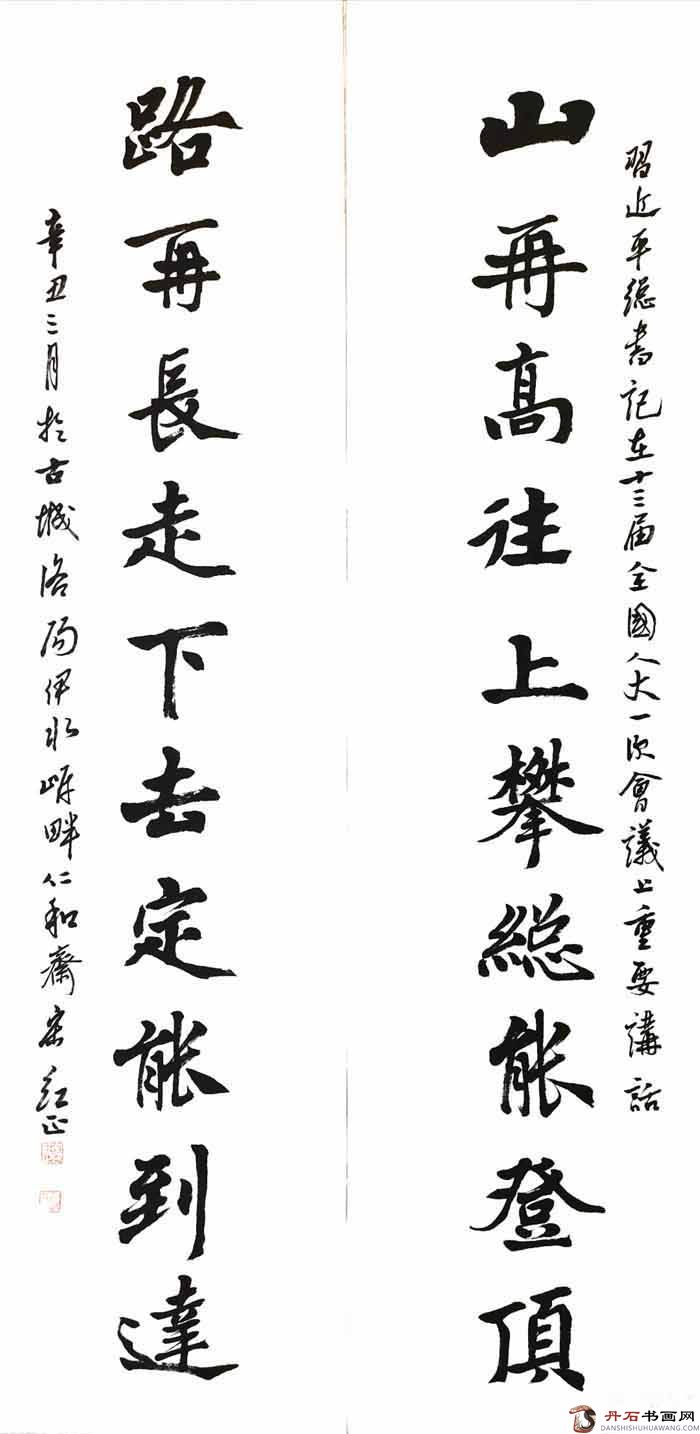 習近平總書記在十三届全國人大一次會議上重要講話
山再高往上攀總能登頂
路再長走下去定能到達
辛丑三月於古城洛陽伊水岸畔仁和齋宋紅正
丹石书画网
DANSHISHUHUAWANG.COM